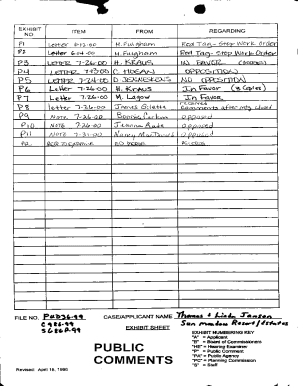 EXHIBIT NO ITEM FROM REGARDING
P1 Letter 6-12-00 H. Fulgham Red Tag - Stop Work Order
P2 Letter 6-14-00 H. Fulgham Red Tag. Stop Work Order
P3 LETTER 7-26-00 H. KRAUS IN FAVOR
P4 LETTER C. HOGAN OPPOSITION
P5 LETTER 7-26-00 NO OPPOSITION
P6 Letter 7-26-00 H. Kraus In Favor (2 Copies)
P7 Letter 7-26-00 M. Lagow In Favor
P8 letter 7-26-00 James Gillette comments after mtg closed
P9 Note 7-26-00 opposed
P10 Note 7-26-00 Jeanna opposed
P11 Note 7-31-00 Nancy opposed
FILE NO. PUD36-99 CASE/APPLICANT NAME Thomas & Linda Jansen
C986-99 San meadow Resort/Estates
S6868-99 EXHIBIT SHEET
EXHIBIT NUMBERING KEY
"A" = Applicant
"B" = Board of Commissioners
"HE" = Hearing Examiner
"P" = Public Comment
"PA" = Public Agency
"PC" = Planning Commission
"S" = Staff
PUBLIC
COMMENTS
Revised: April 16, 1996